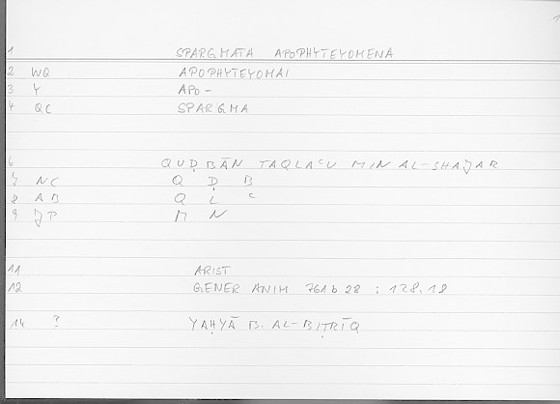 1 SPARGMATA APOPHYTEYOMENA
2 WQ APOPHYTEYOMAI
3 Y APO-
4 QC SPARGMA
6 QUḌBĀN TAQLAʿU MIN AL-SHAJAR
7 NC Q Ḍ B
8 AB Q L ʿ
9 JP M N
11 ARIST
12 GENER ANIM 761b28 ; 128,18
14 ? YAḤYĀ B. AL-BIṬRĪQ